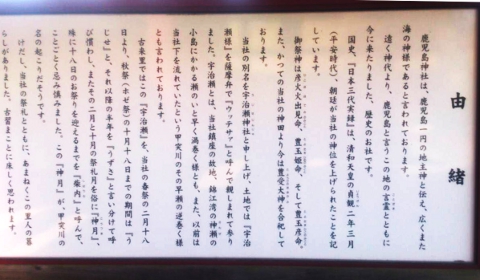 由緒
鹿児島神社は、鹿児島一円の地主神と伝え、広くまた
海の神様であると言われております。
遠く神代より、鹿児島と言うこの地の言霊とともに
今に来たりました、歴史のお社です。
国史、『日本三代実録』は、清和天皇の貞観二年三月
(平安時代)朝廷が当社の神位を上げられたことを記
しています。
御祭神は彦火火出見命、豊玉姫命、そして豊玉彦命。
また、かつての当社の神田より今は豊受大神を合祀して
おります。
当社の別名を宇治瀬神社と申し上げ、土地では『宇治
瀬様』を薩摩弁で『ウッテサァ』と呼んで親しまれて参り
ました。宇治瀬とは、当社鎮座の故地、錦江湾の神瀬の
小島にかかる瀬のいと早く渦巻く様とも、また、以前は
当社下を流れていたという甲突川のその早瀬の逆巻く様
とも言われております。
古来里ではこの『宇治瀬』を、当社の春祭の二月十八
日より、秋祭(ホゼ祭)の十月十八日までの期間は『う
じせ』と、それ以降の半年を『うずき』と言い分けて呼
び慣わし、またその二月と十月の祭礼月を俗に『神月』、
殊に十八日のお祭りを迎えるまでを『柴内』と呼んで、
ことごとく忌み慎みました。この『神月』が、甲突川の
名の起こりだそうです。
けだし、当社の祭礼とともに、あまねくこの里人の暮
らしがありました。古習まことに床しく思われます。